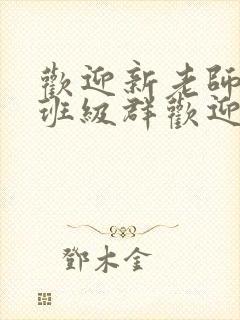 歡迎新老師
班級群歡迎
鄧木金